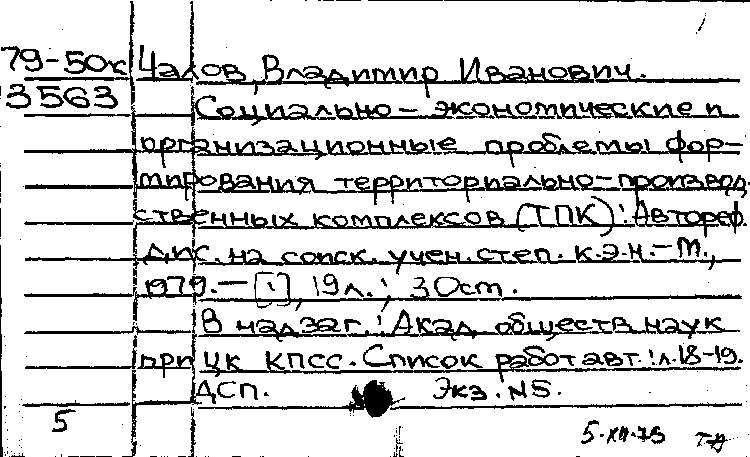 79-50к Чалов, Владимир Иванович.
3563 Социально-экономические и
организационные проблемы фор-
мирования территориально-производ-
ственных комплексов (ТПК): Автореф.
дис. на соиск. учен. степ. к.э.н. - М.,
1979. - [1], 19 л.; 30 см.
В надзаг.: Акад. обществ. наук
при ЦК КПСС. Список работ авт.: л. 18-19.
ДСП. Экз. №5.
5